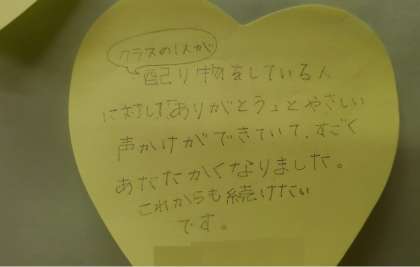 クラスの1人が
配り物をしている人
に対して「ありがとう」とやさしい
声かけができていて、すごく
あたたかくなりました。
これからも続けたい
です。